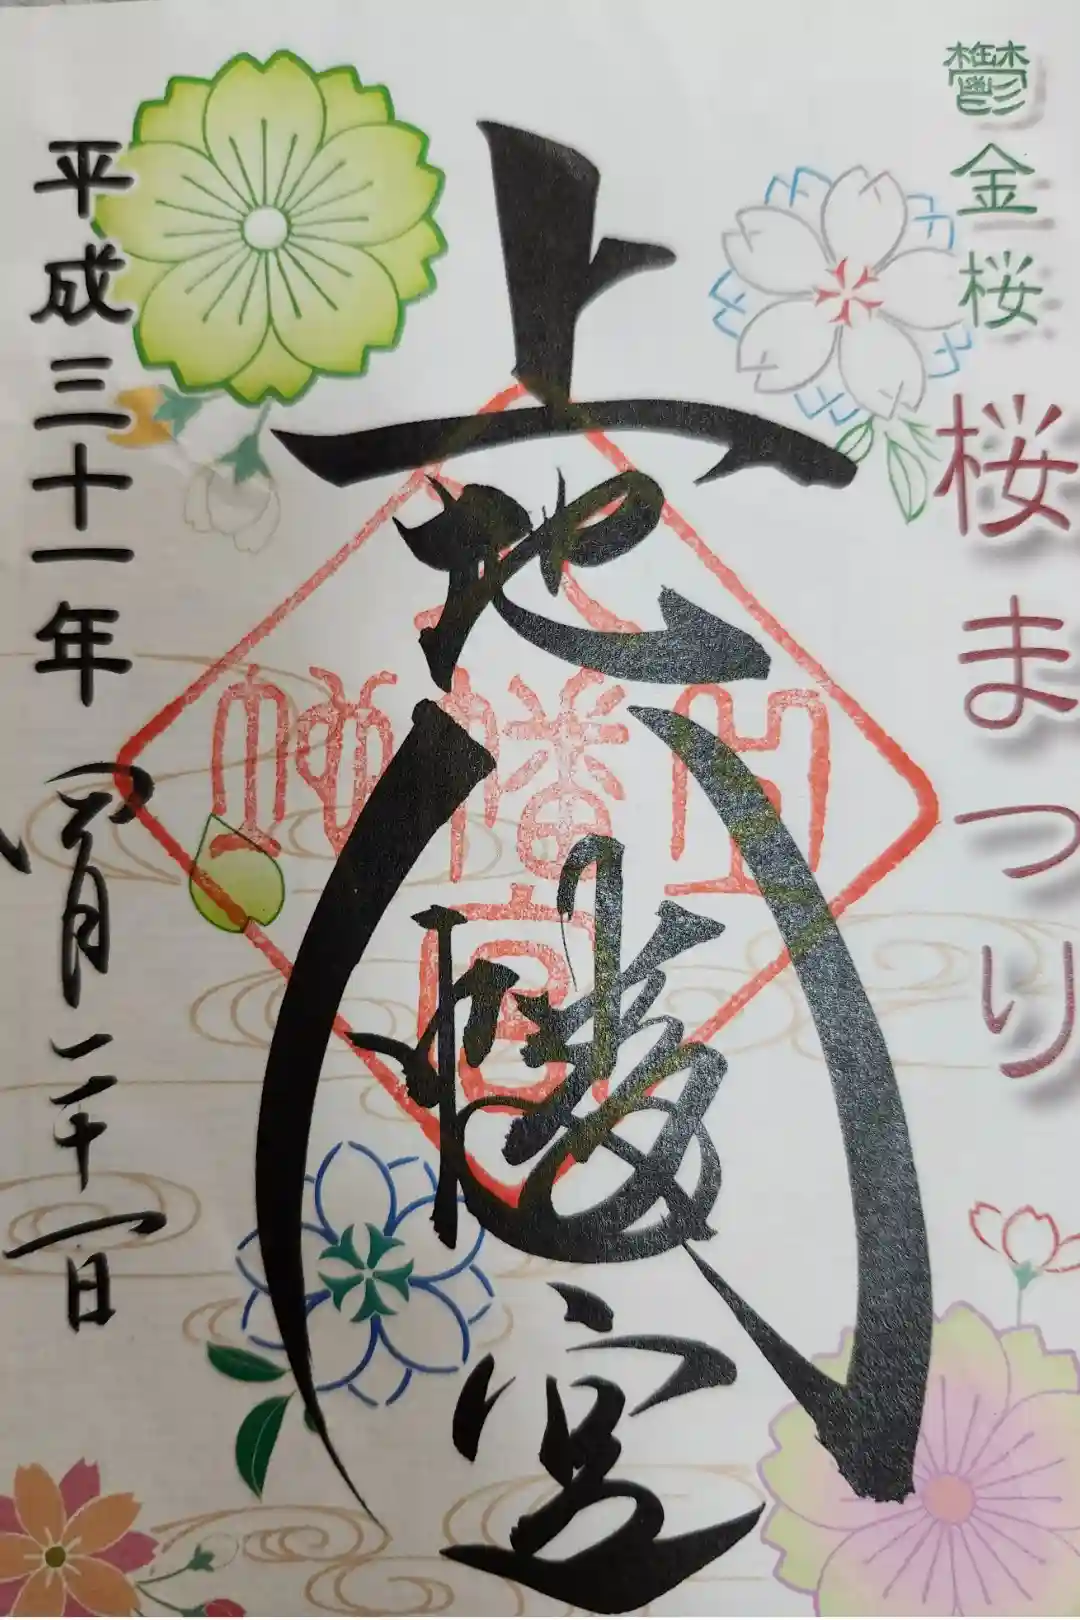 鬱金桜
桜まつり
上地八幡宮
上地
八幡
宮
平成三十一年四月二十一日